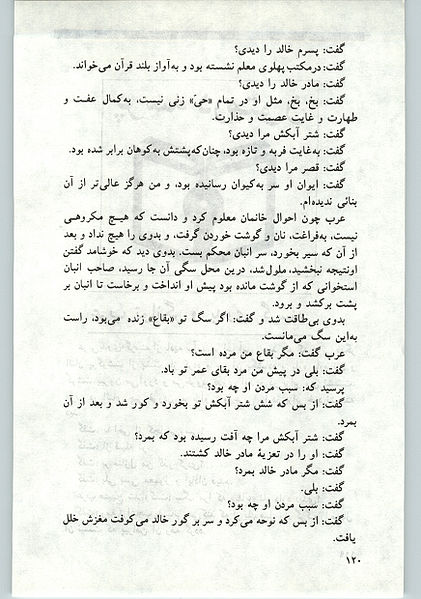 گفت: پسرم خالد را دیدی؟
گفت: درمکتب پهلوی معلم نشسته بود و به‌آواز بلند قرآن می‌خواند.
گفت: مادر خالد را دیدی؟
گفت: بخ، بخ، مثل او در تمام «حیّ» زنی نیست، به‌کمال عفت و
طهارت و غایت عصمت و حذارت.
گفت: شتر آبکش مرا دیدی؟
گفت: به‌غایت فربه و تازه بود، چنان‌که‌پشتش به‌کوهان برابر شده بود.
گفت: قصر مرا دیدی؟
گفت: ایوان او سر به‌کیوان رسانیده بود، و من هرگز عالی‌تر از آن
بنائی ندیده‌ام.
عرب چون احوال خانمان معلوم کرد و دانست که هیچ مکروهی
نیست، به‌فراغت، نان و گوشت خوردن گرفت، و بدوی را هیچ نداد و بعد
از آن که سیر بخورد، سر انبان محکم بست. بدوی دید که خوشامد گفتن
اونتیجه نبخشید، ملول‌شد، درین محل سگی آن جا رسید، صاحب انبان
استخوانی که از گوشت مانده بود پیش او انداخت و برخاست تا انبان بر
پشت برکشد و برود.
بدوی بی‌طاقت شد و گفت: اگر سگ تو «بقاع» زنده می‌بود، راست
به‌این سگ می‌مانست.
عرب گفت: مگر بقاع من مرده است؟
گفت: بلی در پیش من مرد بقای عمر تو باد.
پرسید که: سبب مردن او چه بود؟
گفت: از بس که شش شتر آبکش تو بخورد و کور شد و بعد از آن
بمرد.
گفت: شتر آبکش مرا چه آفت رسیده بود که بمرد؟
گفت: او را در تعزیهٔ مادر خالد کشتند.
گفت: مگر مادر خالد بمرد؟
گفت: بلی.
گفت: سبب مردن او چه بود؟
گفت: از بس که نوحه می‌کرد و سر بر گور خالد می‌کوفت مغزش خلل
یافت.
۱۲۰